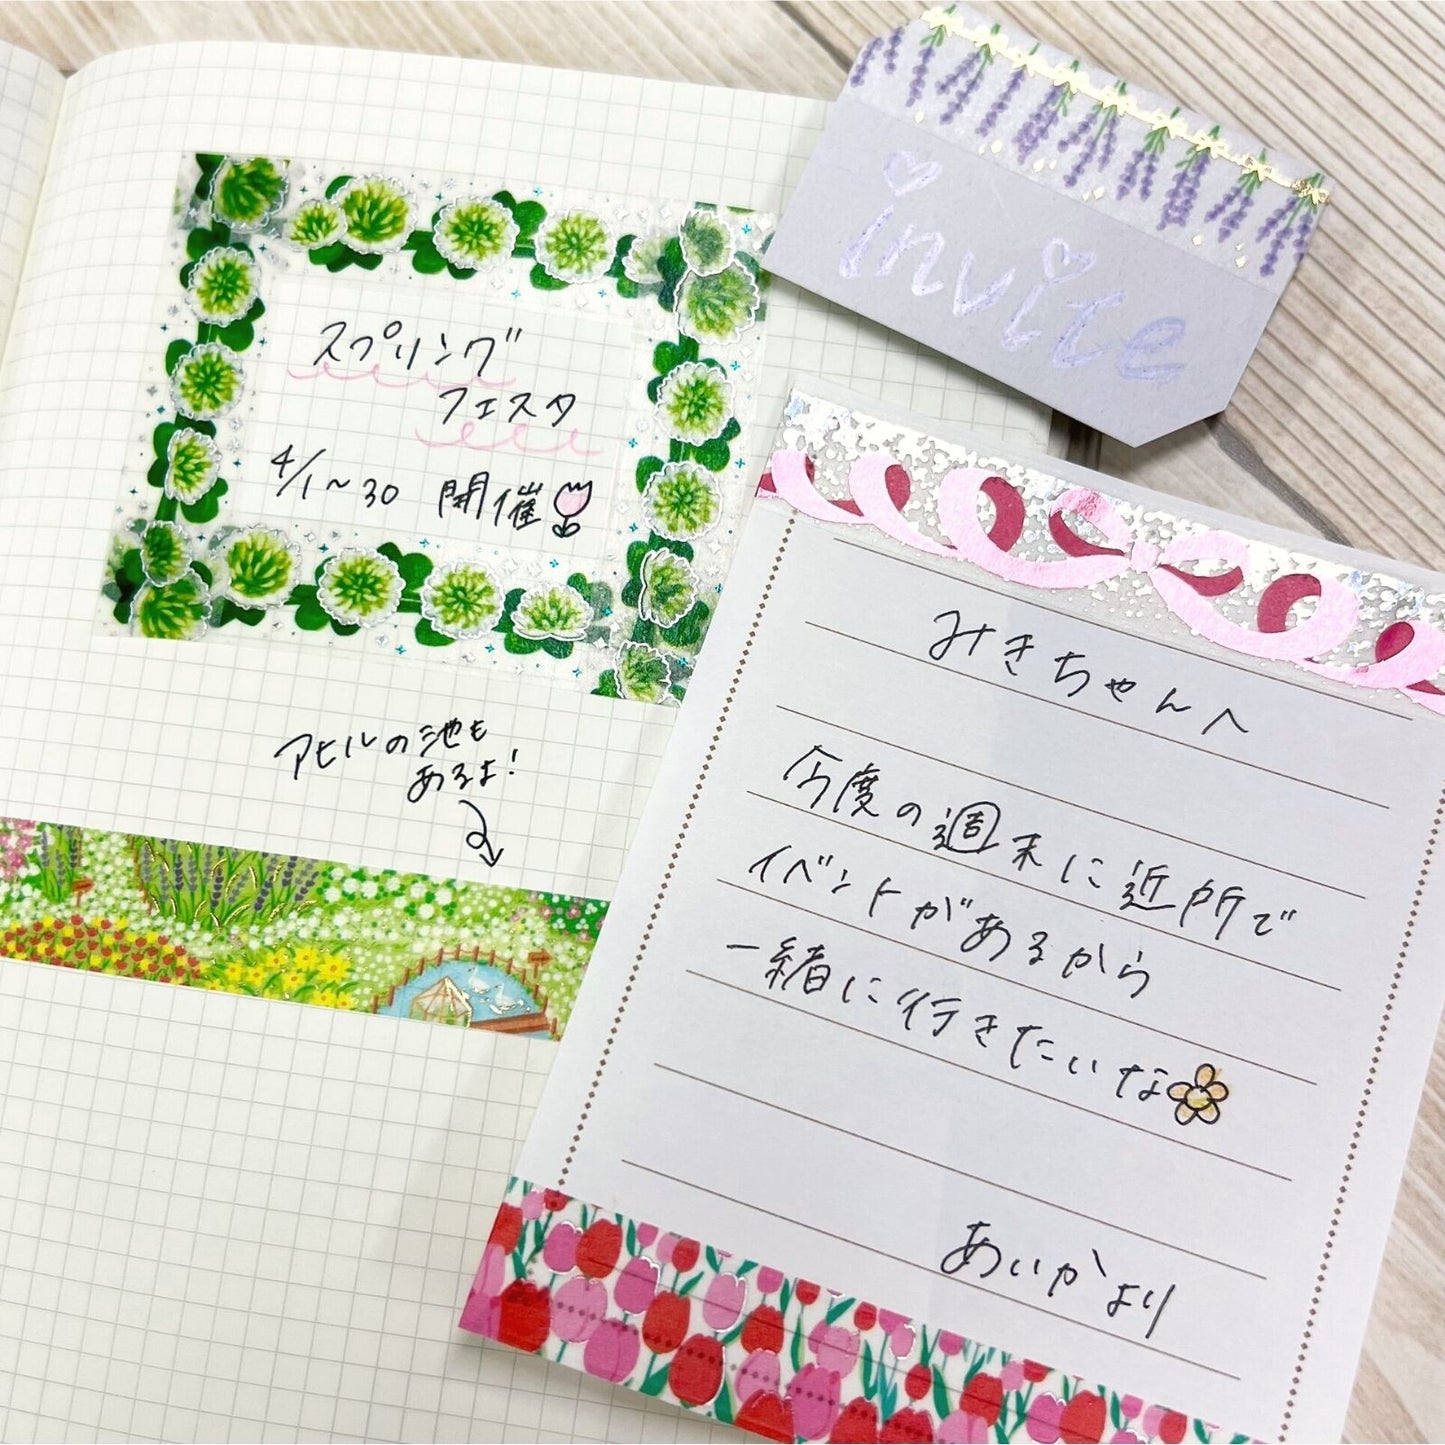 スプリング
フェスタ
4/1〜30 開催
アヒルの池も
あるよ!
invite
みきちゃんへ
今度の週末に近所で
イベントがあるから
一緒に行きたいな
あいかより